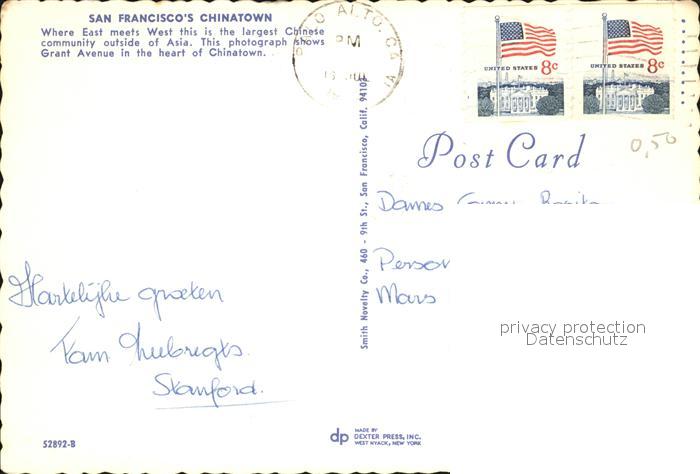 SAN FRANCISCO'S CHINATOWN
Where East meets West this is the largest Chinese
community outside of Asia. This photograph shows
Grant Avenue in the heart of Chinatown.
O ALTO, CA
PM
UNITED STATES 8c
UNITED STATES 8c
0,50
Post Card
Smith Novelty Co., 460 - 9th St., San Francisco, Calif. 94103
Dames
Person
Mars
Hartelijke groeten
Fam Hubregts.
Stanford.
privacy protection
Datenschutz
52892-B
dp MADE BY
DEXTER PRESS, INC.
WEST NYACK, NEW YORK